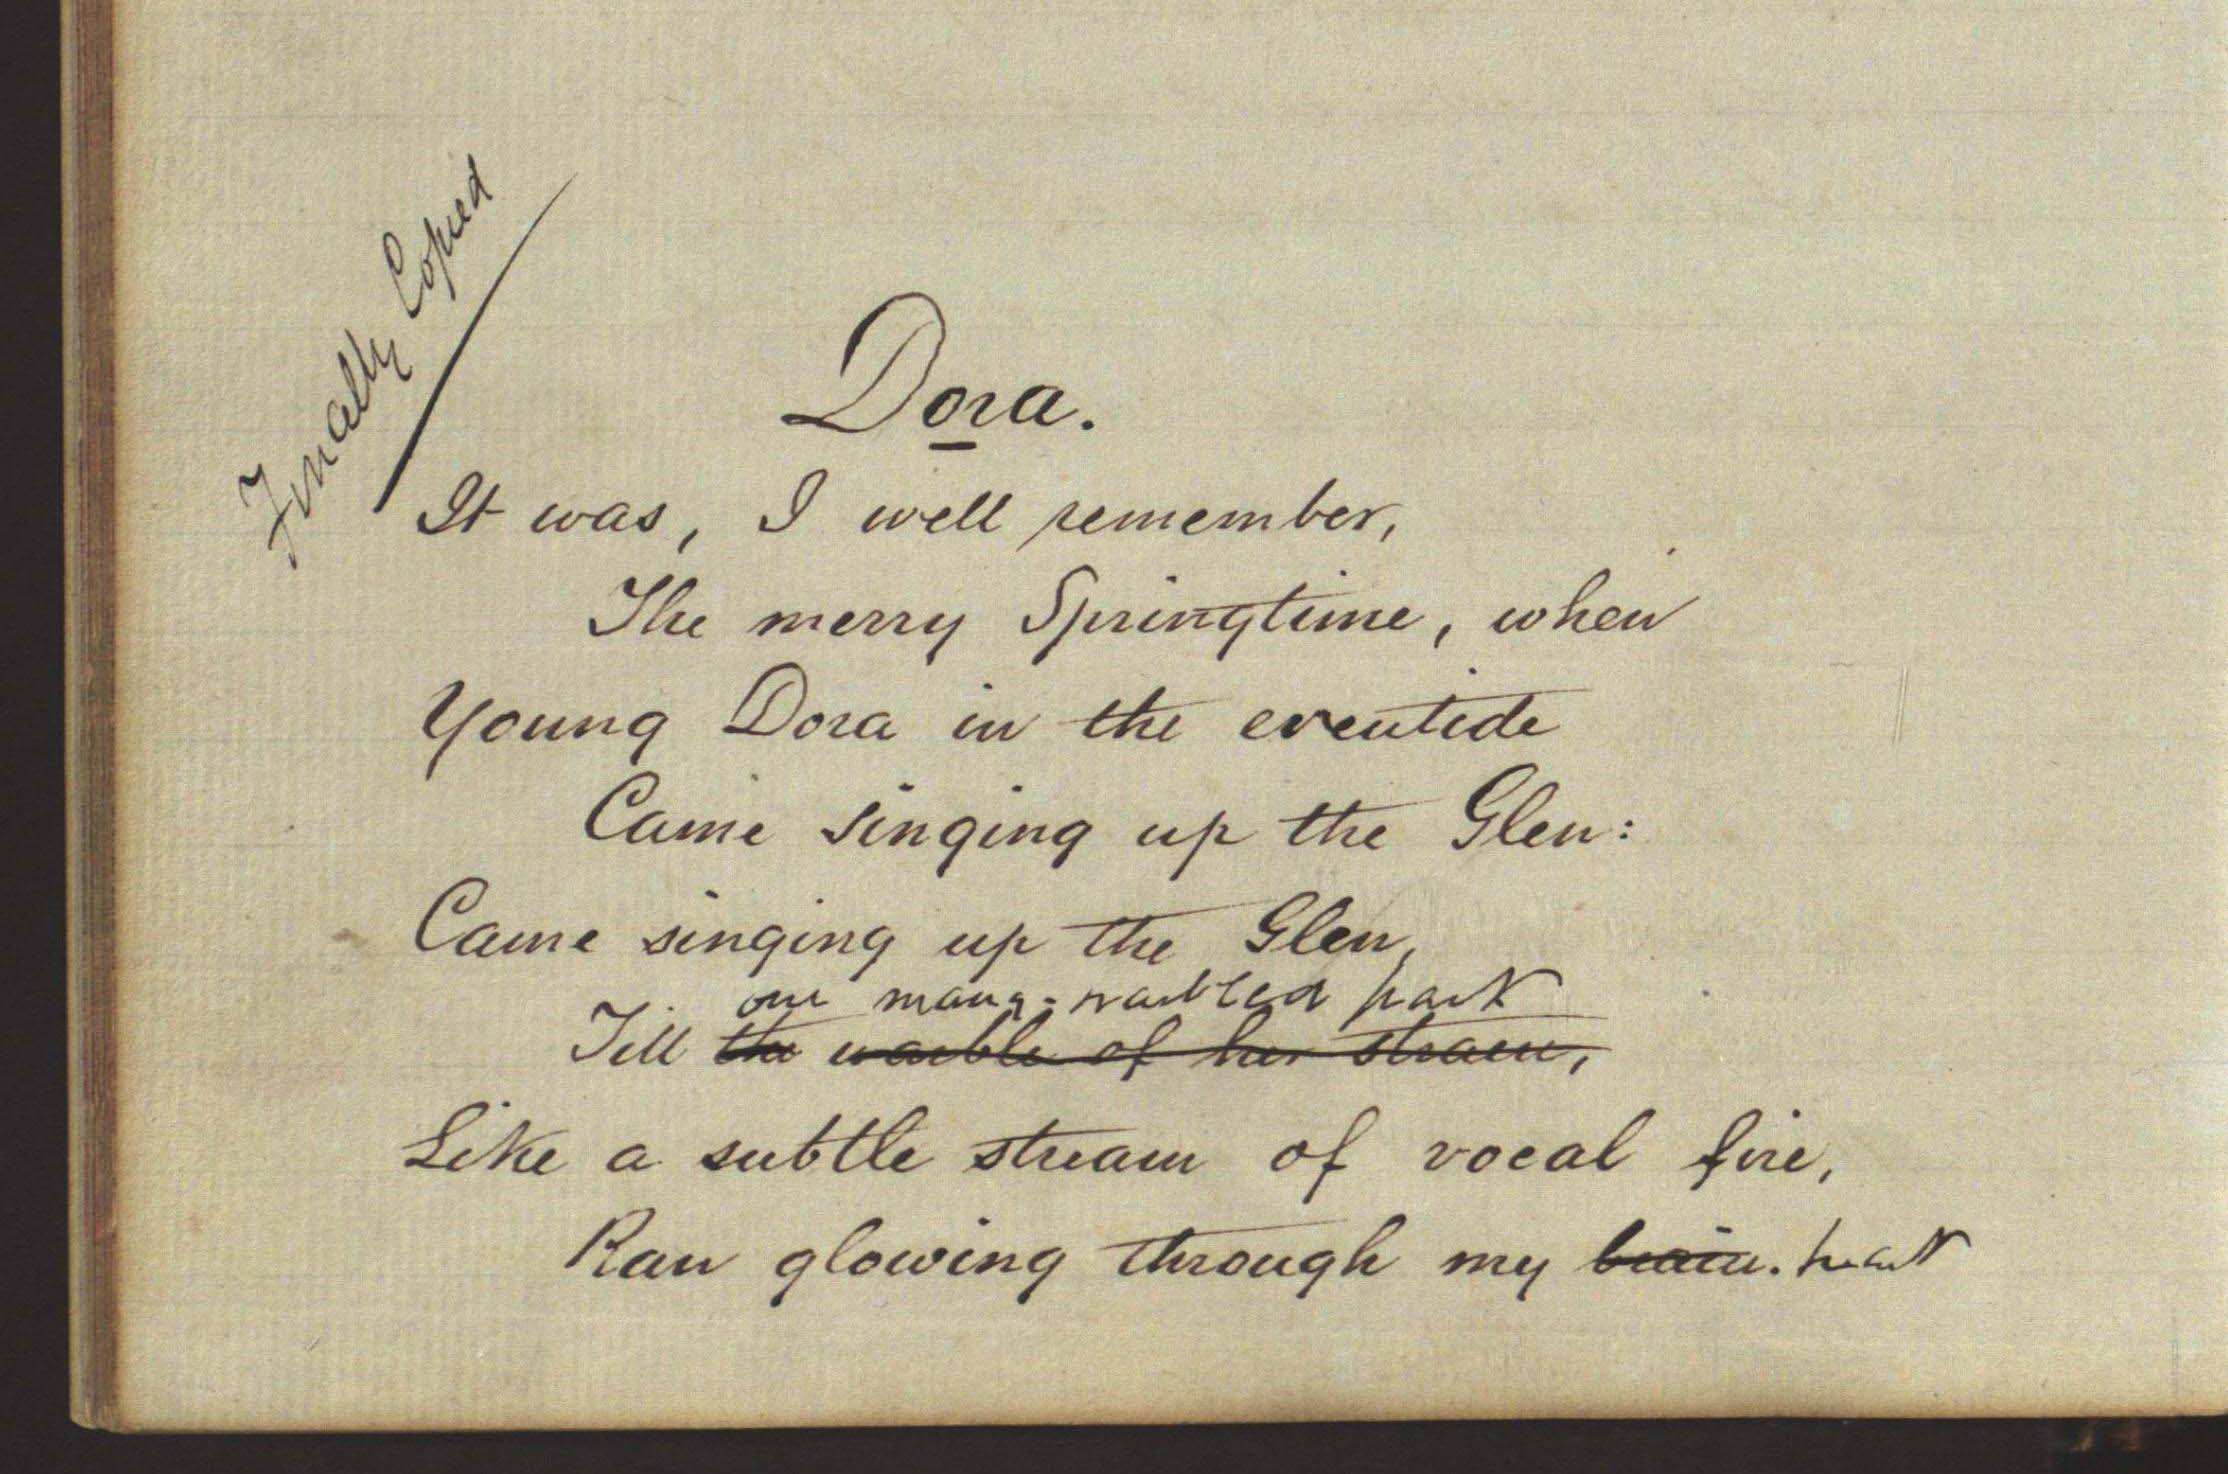 Finally Copied
Dora.
It was, I well remember,
The merry Springtime, when
Young Dora in the eventide
Came singing up the Glen:
Came singing up the Glen,
our many-warbled part
Till the warble of her strain,
Like a subtle stream of vocal fire,
Ran glowing through my brain. heart